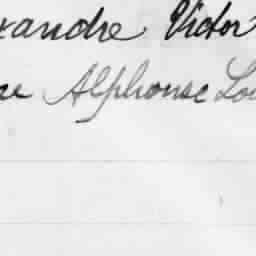 xandre Victor
se Alphonse Lou